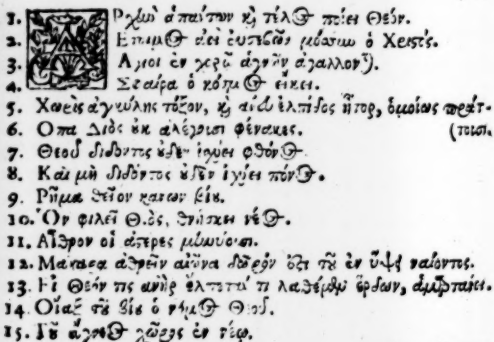 1. ΑΡχὴν ἁπάντων καὶ τέλος ποίει Θεόν.
2. ἀεὶ ἐυσεβῶν ὁ Χριστός.
3. ἐν ἁγνῶν ἀγάλλονται.
4. ὁ κόσμος εἴκει.
5. Χωρὶς ἀγκύλης τόξον, καὶ ἐλπίδος ἦτορ, ὁμοίως πράτ-
6. Ὄπα Διὸς οὐκ ἀλέγουσι φένακες. (τουσι.
7. Θεοῦ διδόντος οὐδὲν ἰσχύει φθόνος.
8. Καὶ μὴ διδόντος οὐδὲν ἰσχύει πόνος.
9. Ῥῆμα θεῖον βίου.
10. Ὃν φιλεῖ Θεὸς, θνήσκει νέος.
11. Αἶθρον οἱ ἀστέρες μηνύουσι.
12. Μάκαρα ἀθρεῖν αἰῶνα δῶρόν ὅτι τοῦ ἐν ὕψει ναίοντος.
13. Εἰ Θεόν τις ἀνὴρ ἔλπεταί τι λαθέμεν ἔρδων, ἁμαρτάνει.
14. Οἴαξ τοῦ βίου ὁ νόμος Θεοῦ.
15. Τοῦ χῶρος ἐν